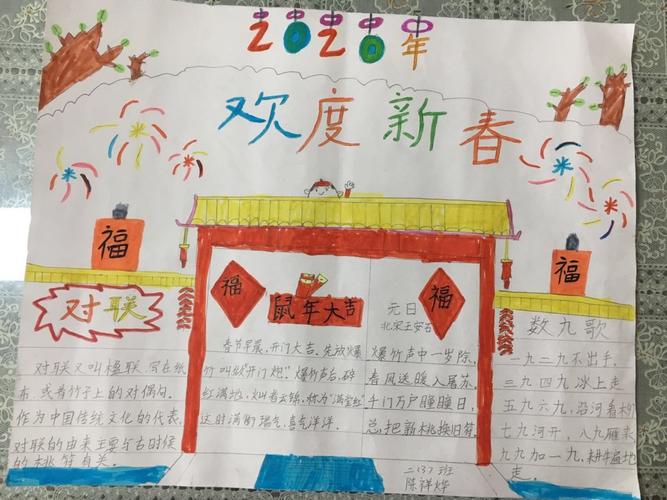 2020年
欢度新春
福
福
福
福
鼠年大吉
对联
对联又叫楹联,写在纸
布,或者竹子上的对偶句。
作为中国传统文化的代表,
对联的由来主要与古时候
的桃符有关。
春节早晨,开门大吉,先放爆
竹叫做"开门炮"。爆竹声后,碎
红满地,灿若云锦,称为"满堂红"
这时满街瑞气,喜气洋洋。
元日
北宋王安石
爆竹声中一岁除,
春风送暖入屠苏。
千门万户曈曈日,
总把新桃换旧符。
数九歌
一九二九不出手,
三九四九冰上走,
五九六九,沿河看柳,
七九河开,八九雁来,
九九加一九,耕牛遍地
走。
二(3)班
陈祥烨